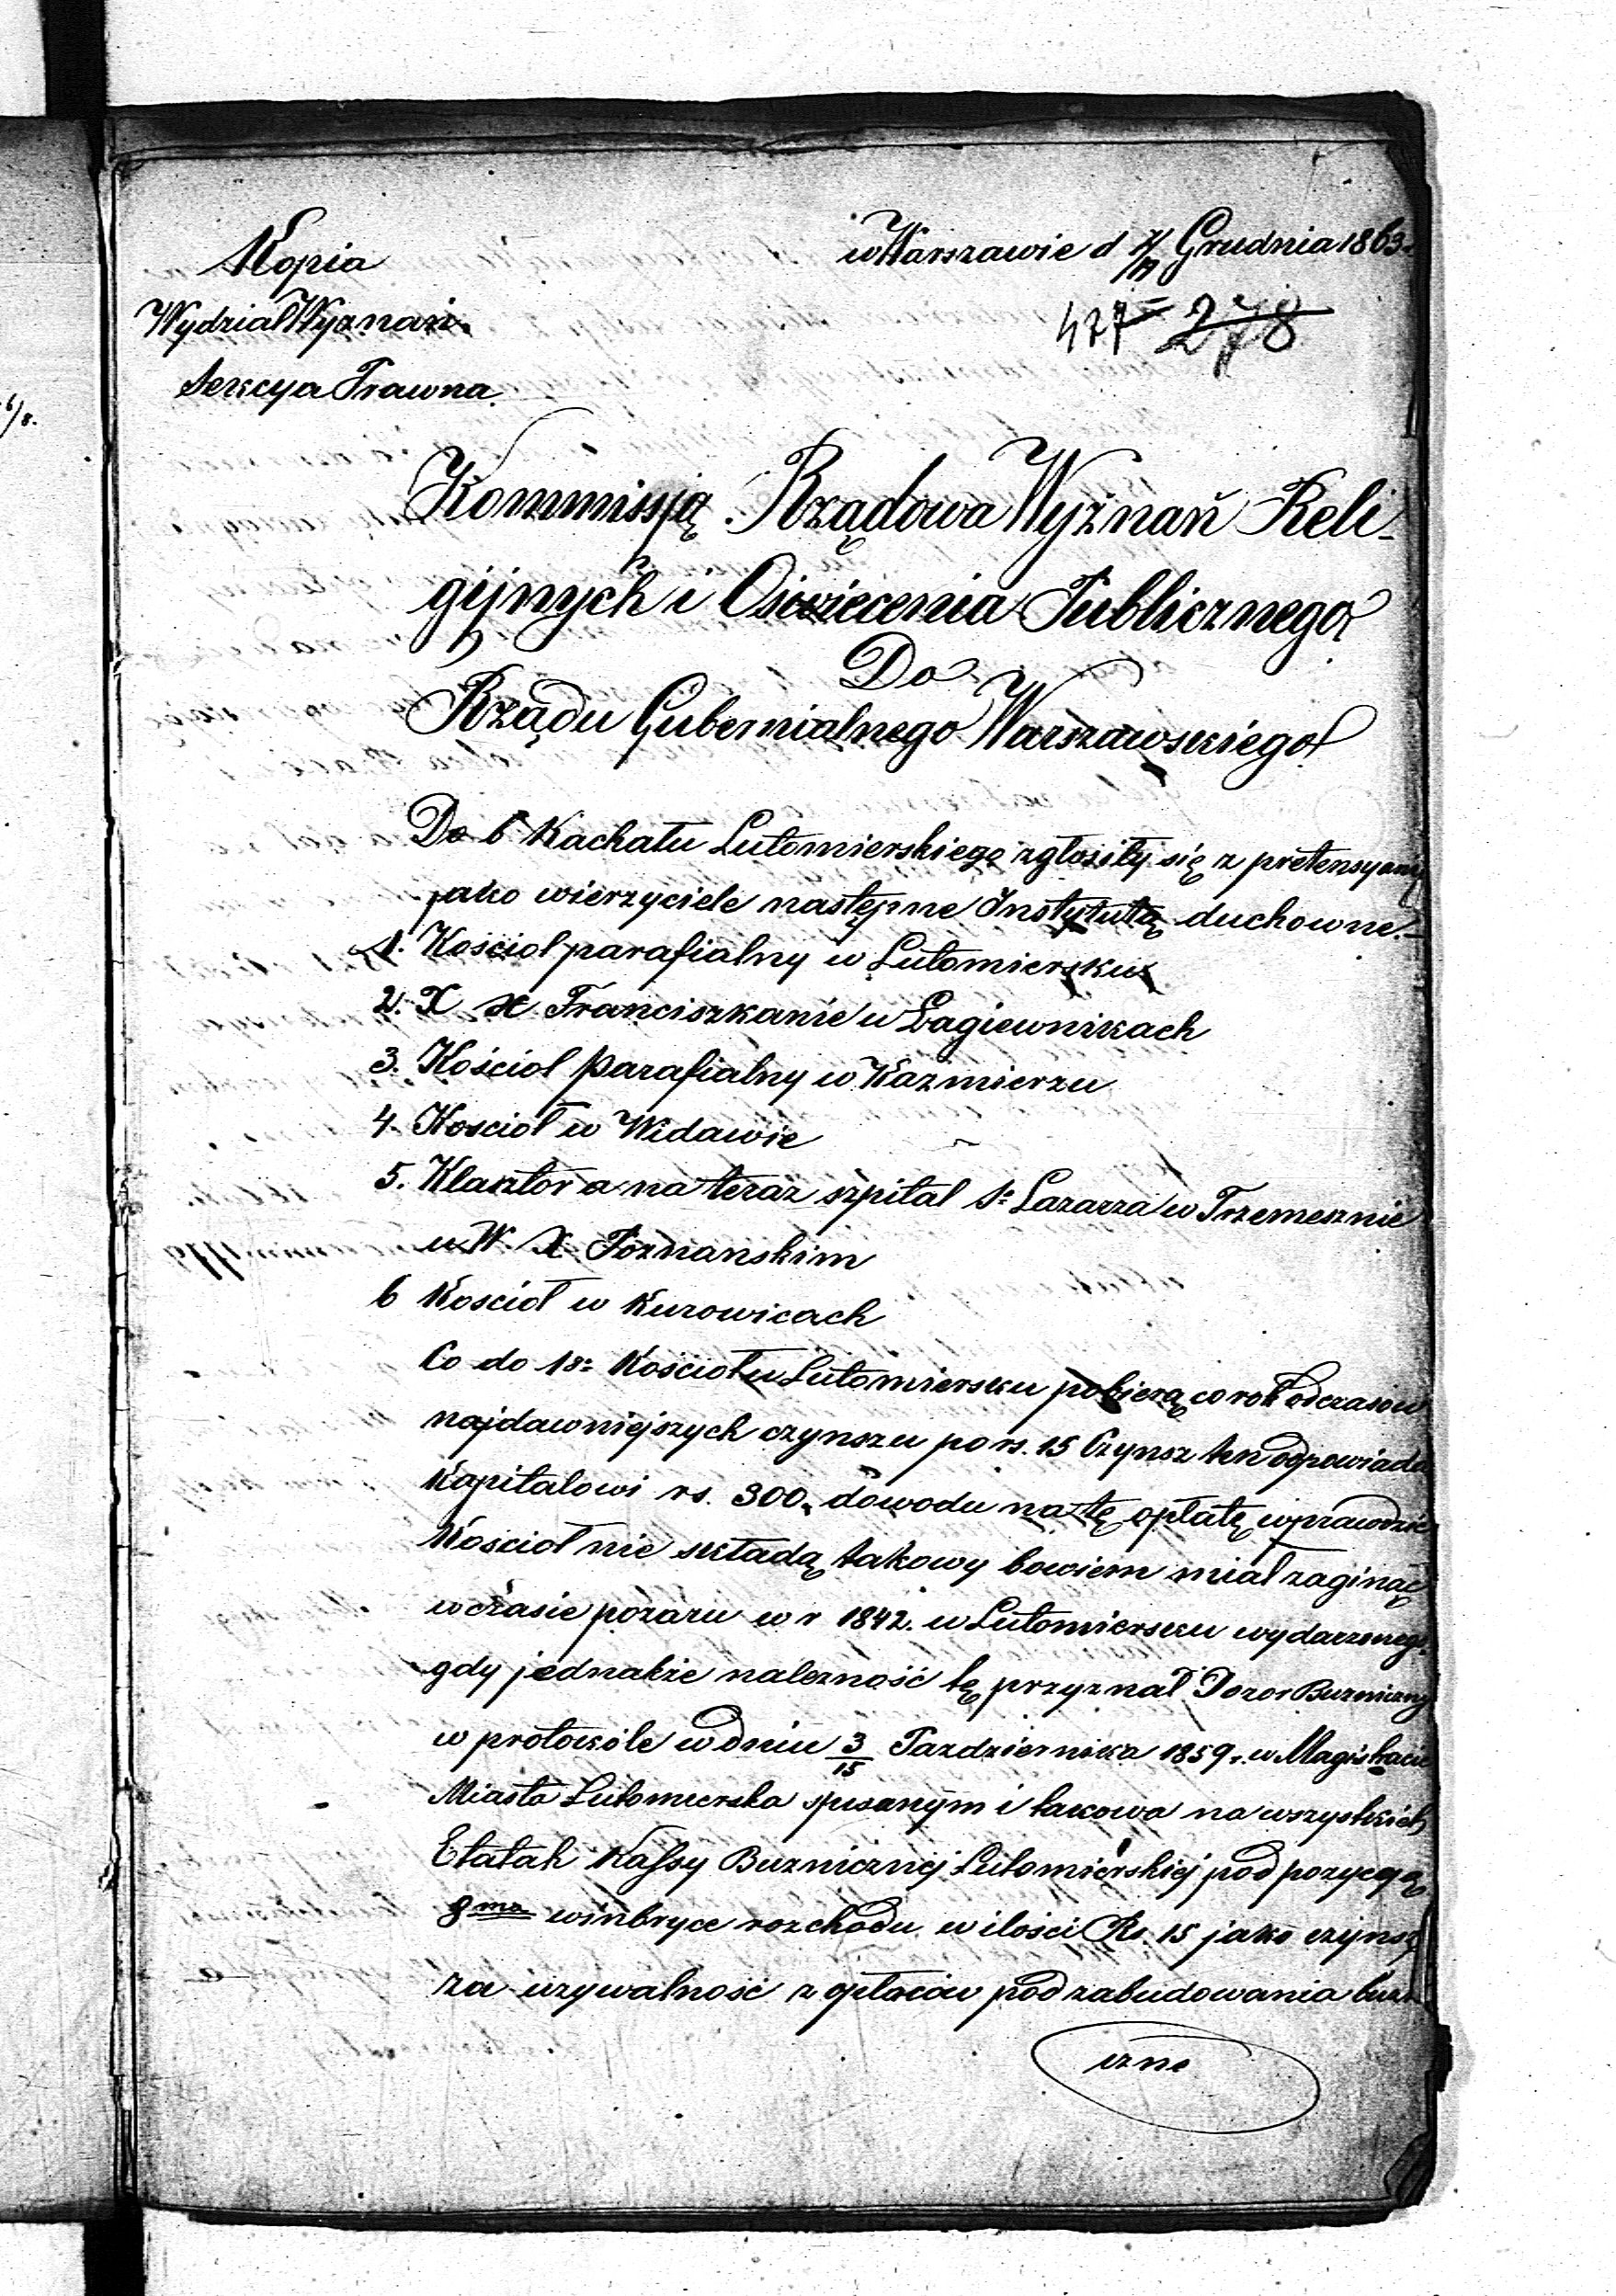 Kopia
w Warszawie d 7/19 Grudnia 1863.
Wydział Wyznań.
477 = 278
Sekcya Prawna
Kommissya Rządowa Wyznań Reli-
gijnych i Oświecenia Publicznego
Do
Rządu Gubernialnego Warszawskiego
Do b Kachału Lutomierskiego zgłosiły się z pretensyami
jako wierzyciele następne Instytuta duchowne.-
1. Kościoł parafialny w Lutomiersku
2. X X Franciszkanie w Łagiewnikach
3. Kościoł parafialny w Kazmierzu
4. Kościoł w Widawie
5. Klasztor a na teraz szpital Sº Lazarza w Trzemesznie
w W. X. Poznanskim
6 Kościoł w Kurowicach
Co do 1º Kościoł w Lutomiersku pobiera co rok od czasów
najdawniejszych czynszu po rs. 15 Czynsz ten odpowiada
Kapitalowi rs. 300. dowodu na tę opłatę wprawdzie
Kościoł nie składa, takowy bowiem miał zaginąć
w czasie pożaru w r 1842. w Lutomiersku wydarzonego.
gdy jednakże należność tę przyznał Dozor Bużniczny
w protokóle w dniu 3/15 Pazdziernika 1859 r. w Magistracie
Miasta Lutomierska spisanym i takowa na wszystkich
Etatah Kassy Bużnicznej Lutomierskiej pod pozycyą
8mą w rubryce rozchodu w ilości Rs. 15 jako czynsz
za używalność z opłaców pod zabudowania buż
czne